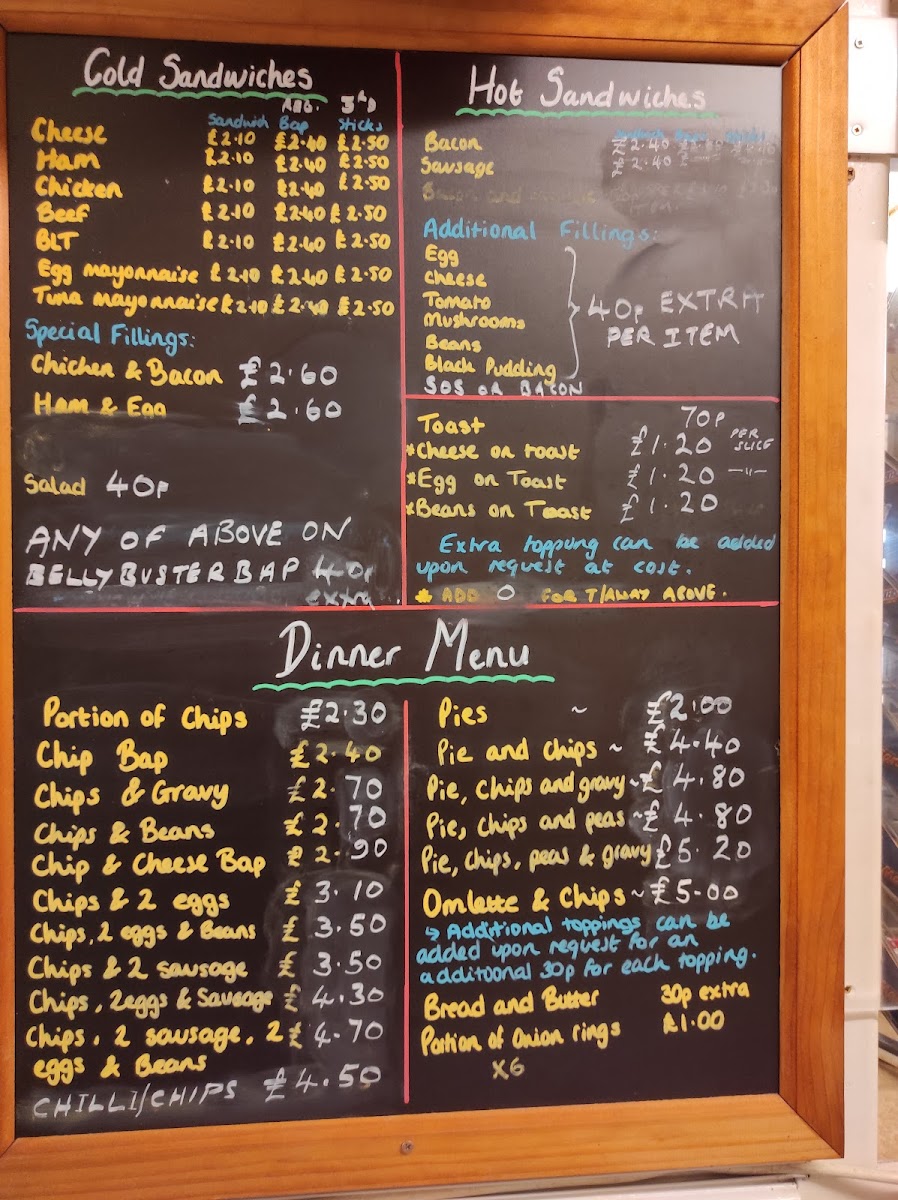 Cold Sandwiches
Sandwich Bap Sticks
Cheese £2.10 £2.40 £2.50
Ham £2.10 £2.40 £2.50
Chicken £2.10 £2.40 £2.50
Beef £2.10 £2.40 £2.50
BLT £2.10 £2.40 £2.50
Egg mayonnaise £2.10 £2.40 £2.50
Tuna mayonnaise £2.10 £2.40 £2.50
Special Fillings:
Chicken & Bacon £2.60
Ham & Egg £2.60
Salad 40p
ANY OF ABOVE ON
BELLYBUSTER BAP 40p
extra
Hot Sandwiches
Bacon £2.40
Sausage £2.40
Additional Fillings:
Egg
Cheese
Tomato
Mushrooms
Beans
Black Pudding
SOS OR BACON
40p EXTRA
PER ITEM
Toast 70p
*Cheese on toast £1.20 PER SLICE
*Egg on Toast £1.20 —"—
*Beans on Toast £1.20
Extra toppung can be added
upon request at cost.
* ADD 0 FOR T/AWAY ABOVE.
Dinner Menu
Portion of Chips £2.30
Chip Bap £2.40
Chips & Gravy £2.70
Chips & Beans £2.70
Chip & Cheese Bap £2.90
Chips & 2 eggs £3.10
Chips, 2 eggs & Beans £3.50
Chips & 2 sausage £3.50
Chips, 2eggs & Sausage £4.30
Chips, 2 sausage, 2 £4.70
eggs & Beans
CHILLI/CHIPS £4.50
Pies ~ £2.00
Pie and chips ~ £4.40
Pie, chips and gravy ~£4.80
Pie, chips and peas ~£4.80
Pie, chips, peas & gravy £5.20
Omlette & Chips ~£5.00
↳ Additional toppings can be
added upon request for an
additoonal 30p for each topping.
Bread and Butter 30p extra
Portion of onion rings £1.00
x6